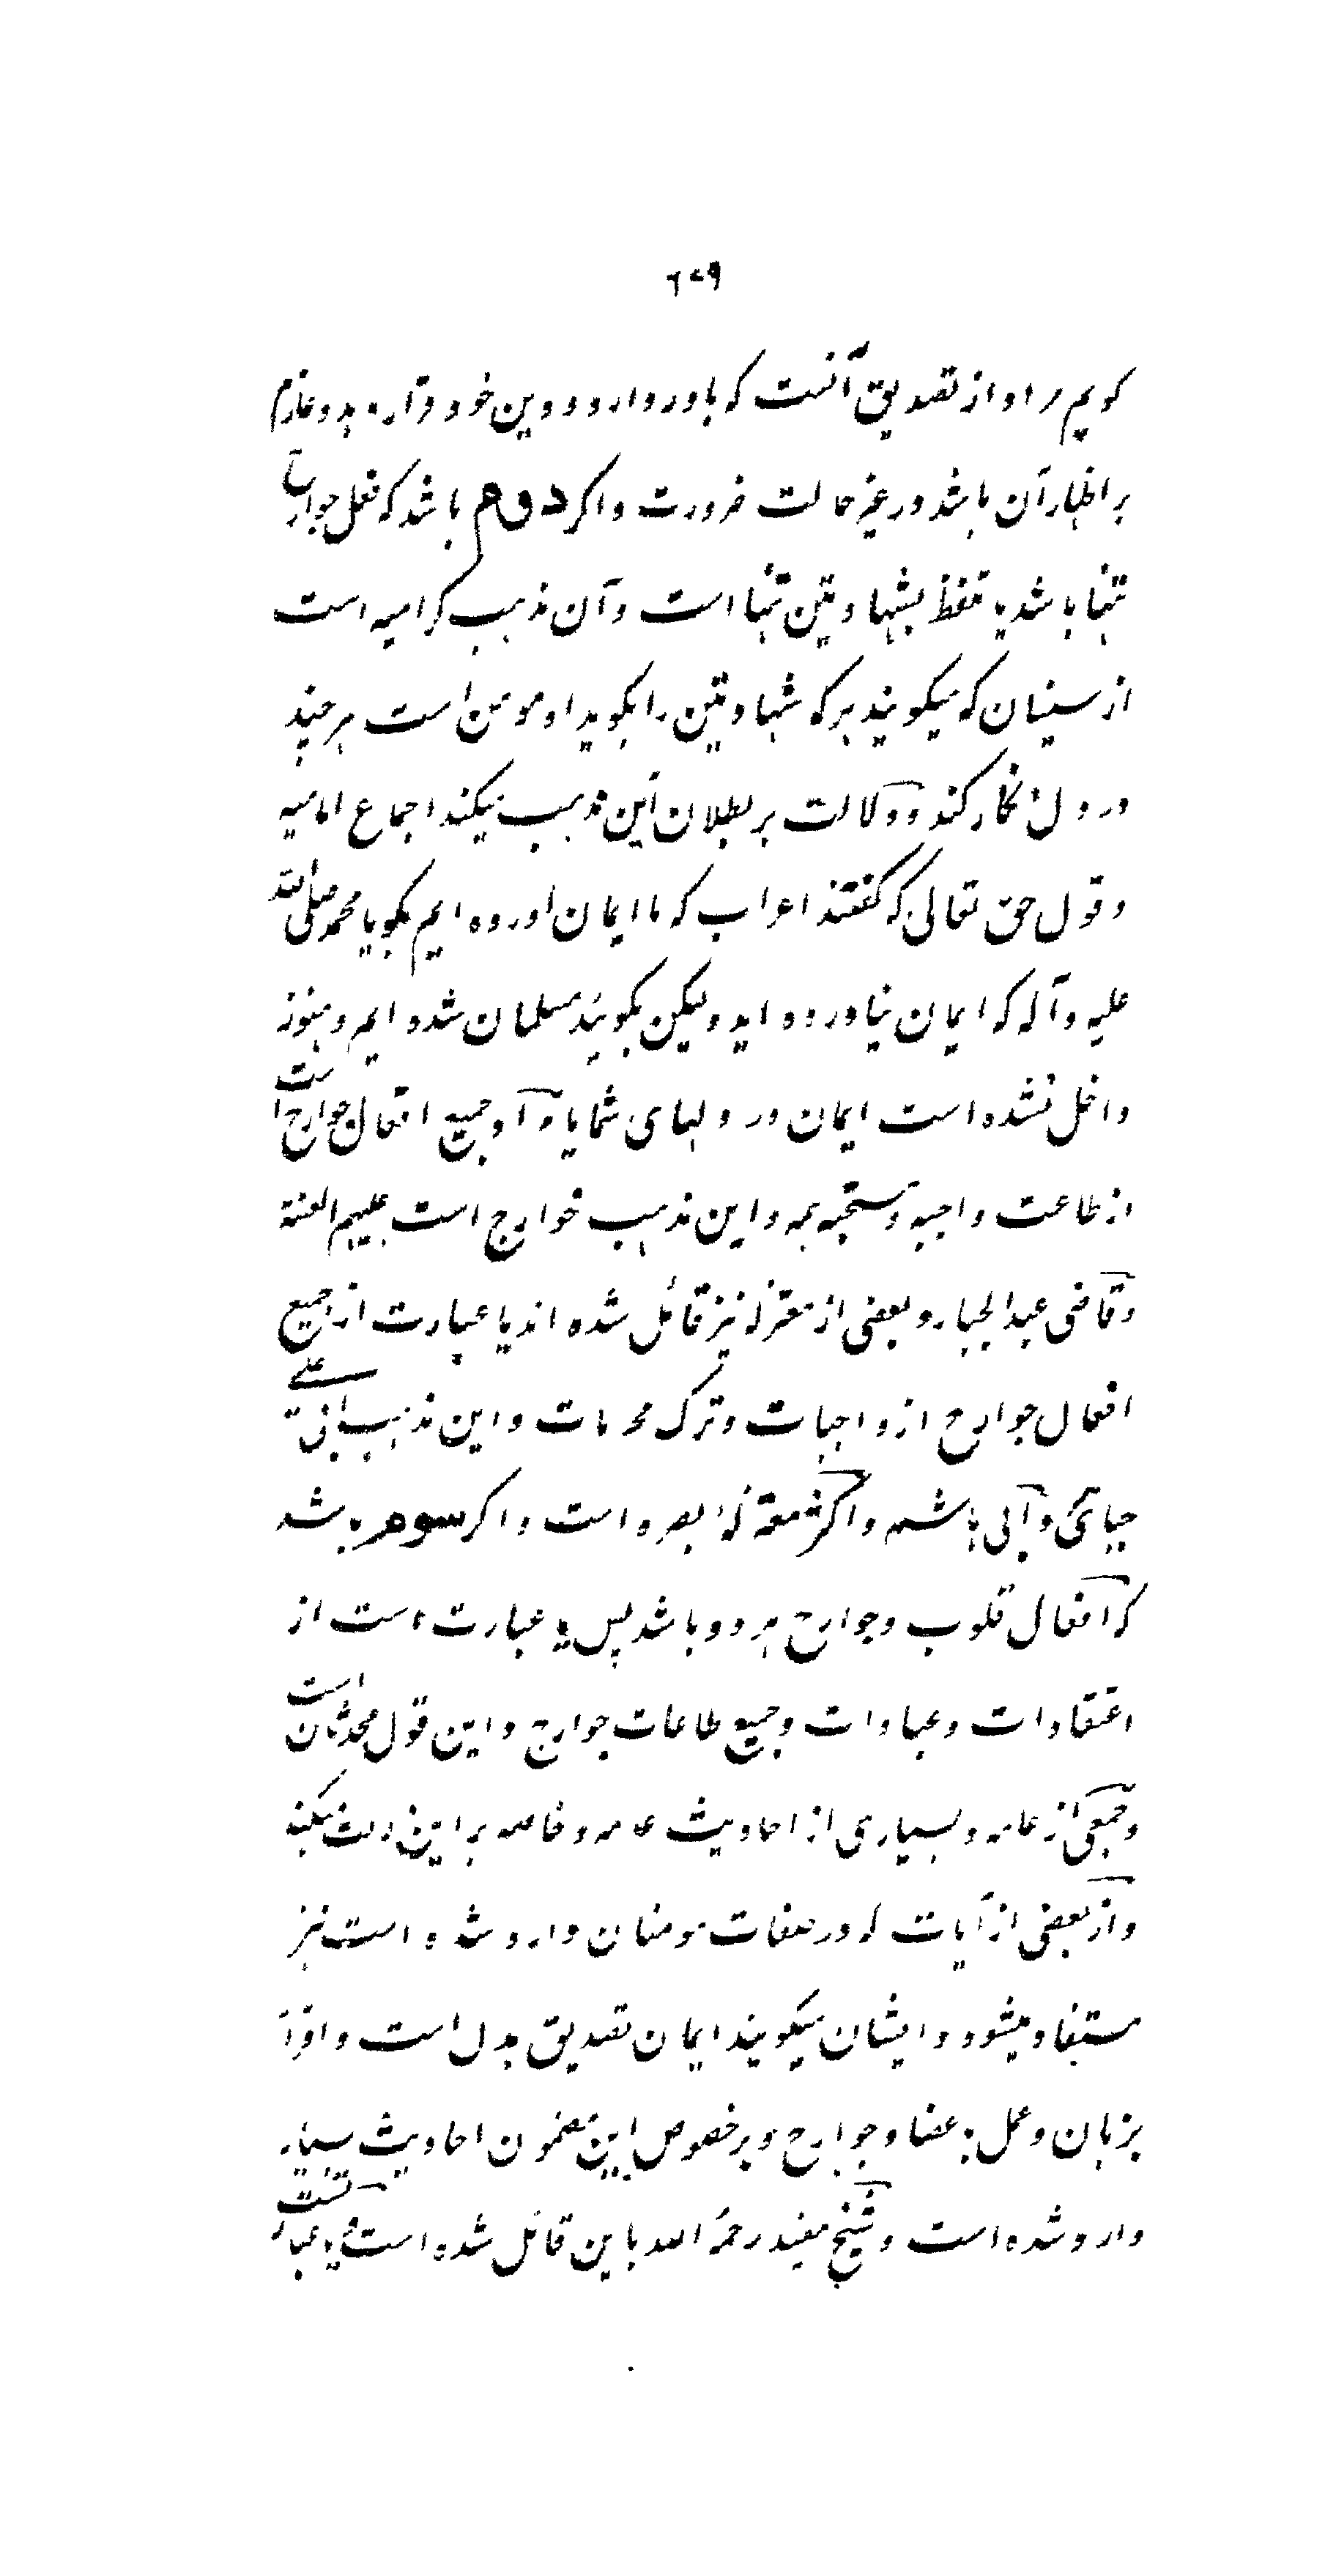 ٦٧٩
کویم مراد از تصدیق آنست که باور دارد و دین خود قرار دهد و عازم
بر اظهار آن باشد در غیر حالت ضرورت و اکر دوم باشد که فعل جوارح
تنها باشد یا تلفظ بشهادتین تنها است و آن مذهب کرامیه است
از سنیان که میکویند هر که شهادتین را بکوید او مومن است هر چند
در دل انکار کند و دلالت بر بطلان این مذهب میکند اجماع امامیه
و قول حق تعالی که کفتند اعراب که ما ایمان اورده ایم بکو یا محمد صلی الله
علیه و آله که ایمان نیاورده اید و لیکن بکوئید مسلمان شده ایم و هنوز
داخل نشده است ایمان در دلهای شما یا و جمیع افعال جوارح است
از طاعت واجبه و مستحبه همه و این مذهب خوارج است علیهم العنة
و قاضی عبدالجبار و بعضی از معتزله نیز قائل شده اند یا عبارت از جمیع
افعال جوارح از واجبات و ترک محرمات و این مذهب ابی علی
جبائی و ابی هاشم و اکثر معتزله بصره است و اکر سوم باشد
که افعال قلوب و جوارح هر دو باشد پس یا عبارت است از
اعتقادات و عبادات و جمیع طاعات جوارح و این قول محدثان است
و جمعی از عامه و بسیاری از احادیث عامه و خاصه بر این دلالت میکند
و از بعضی از آیات که در صفات مومنان وارد شده است نیز
مستفاد میشود و ایشان میکویند ایمان تصدیق بدل است و اقرار
بزبان و عمل باعضا و جوارح و بر خصوص این مضمون احادیث بسیار
وارد شده است و شیخ مفید رحمه الله باین قائل شده است و یا عبارتست